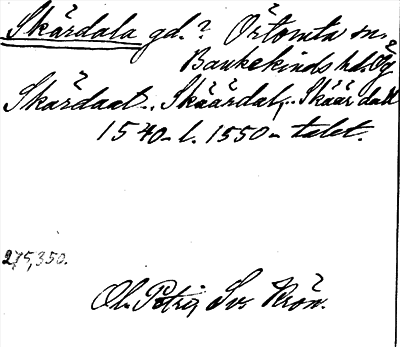 Skärdala gd.? Örtomta sn.
Bankekinds hd. Ög
Skärdaat.. Skäärdal,.. Skäär dall
1540- l. 1550-talet.
275,350.
Ol. Petri, Sv. Krön.